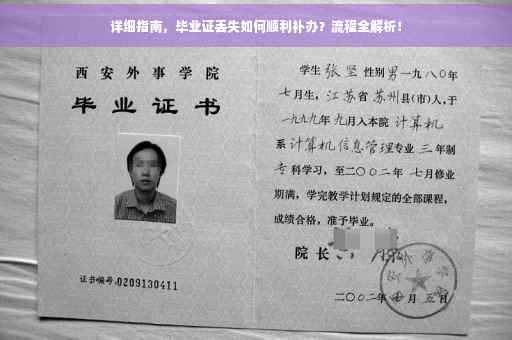 详细指南，毕业证丢失如何顺利补办？流程全解析！
西安外事学院
毕业证书
证书编号:0209130411
学生 张坚 性别 男 一九八〇年
七月生，江苏省 苏州县(市)人，于
一九九九年 九月入本院 计算机
系 计算机信息管理专业 三 年制
专 科学习，至二〇〇二年 七月修业
期满，学完教学计划规定的全部课程，
成绩合格，准予毕业。
院长
二〇〇二年 七 月 五 日